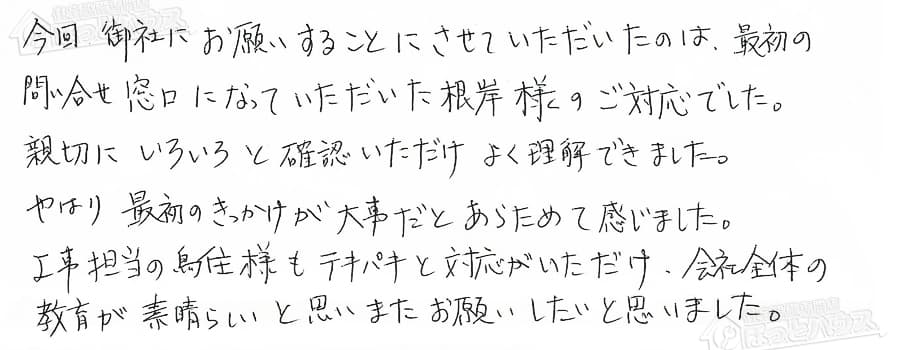 今回 御社に お願いすることにさせていただいたのは、最初の
問い合せ窓口になっていただいた根岸様のご対応でした。
親切に いろいろと確認いただけ よく理解できました。
やはり 最初のきっかけが大事だとあらためて感じました。
工事担当の鳥住様もテキパキと対応がいただけ、会社全体の
教育が素晴らしいと思いまたお願いしたいと思いました。